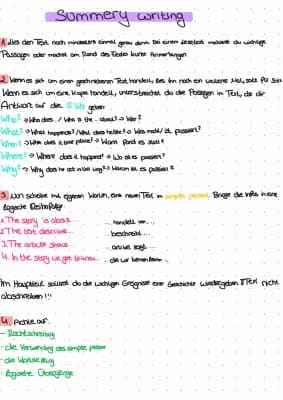 Summery writing
1. Lies den Text noch mindestens einmal genau durch. Bei einem Lesetext markierst du wichtige
Passagen oder machst am Rand des Textes kurze Anmerkungen.
2. Wenn es sich um einen geschriebenen Text handelt, lies ihn noch ein weiteres Mal, Satz für Satz.
Wenn es sich um eine Kopie handelt, unterstreichst du die Passagen im Text, die dir
Antwort auf die 5 Ws geben:
Who? → Who does / Who is the about? → Wer?
What? → What happens? / What does he/she? → Was macht/ist passiert?
When? → When does it take place? → Wann fand es statt?
Where? → Where does it happen? → Wo ist es passiert?
Why? → Why does he act in this way? → Warum ist es passiert?
3. Nun schreibe mit eigenen Worten, einen neuen Text im simple present. Bringe die Infos in eine
logische Reihenfolge
1. The story is about... ... handelt von...
2. The text describes... ... beschreibt...
3. The article shows ... artikel zeigt...
4. In the story we get to know... ... die wir kennenlernen...
Im Hauptteil solltest du die wichtigen Ereignisse einer Geschichte wiedergeben! Text nicht
abschreiben!!!
4. Achte auf:
- Rechtschreibung
- die Verwendung des simple present
- die Wortstellung
- logische Übergänge